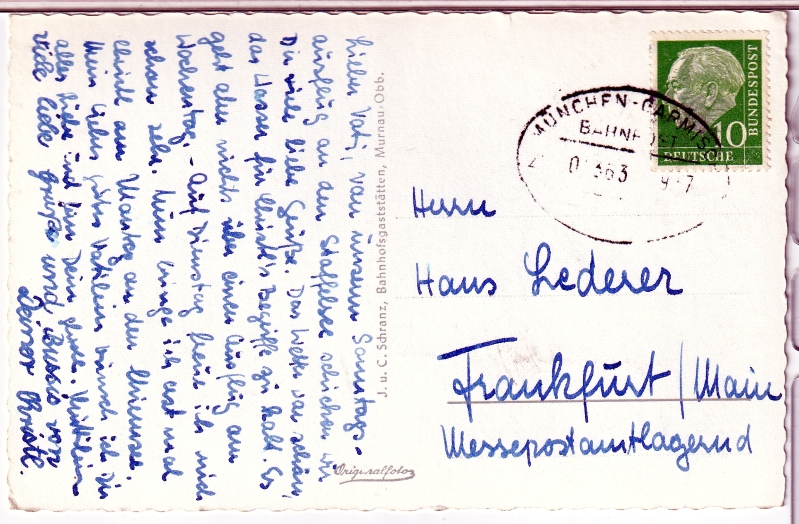 Lieber Vati, von unserm Sonntags-
ausflug an den Staffelsee schicken wir
Dir viele liebe Grüße. Das Wetter war schön,
das Wasser für Christl's Begriffe zu kalt. Es
geht aber nichts über einen Ausflug am
Wochentag. - Auf Dienstag freue ich mich
schon sehr. Nun bringe ich erst mal
Christl am Montag an den Chiemsee.
Mein liebes gutes Vatilein wünsch ich Dir
alles Liebe und für Dein
viele liebe Grüße und Bussis von
Deiner Christl.
J. u. C. Schranz, Bahnhofsgaststätten, Murnau/Obb.
Originalfoto
DEUTSCHE
BUNDESPOST
10
MÜNCHEN-GARMISCH
BAHNPOST
Herrn
Hans Lederer
Frankfurt/Main
Messepostamtlagernd